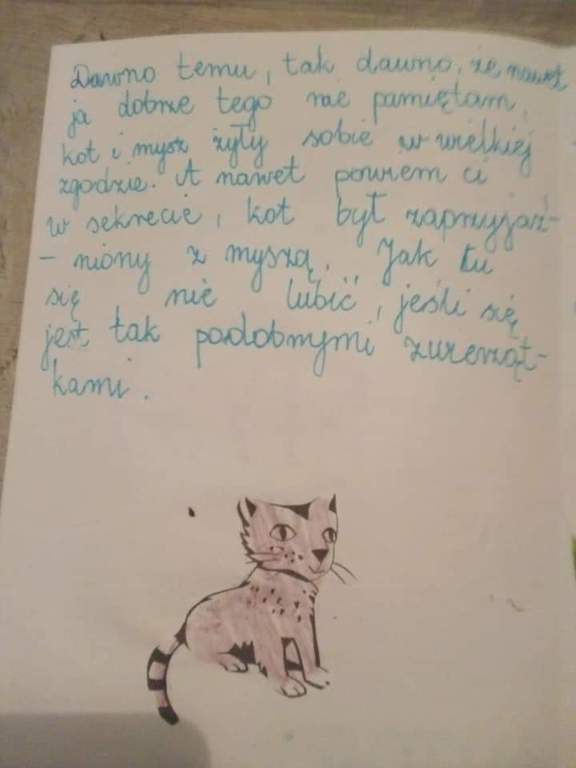 Dawno temu, tak dawno, że nawet
ja dobrze tego nie pamiętam,
kot i mysz żyły sobie w wielkiej
zgodzie. A nawet powiem ci
w sekrecie, kot był zaprzyjaź-
- niony z myszą. Jak tu
się nie lubić, jeśli się
jest tak podobnymi zwierząt-
kami.